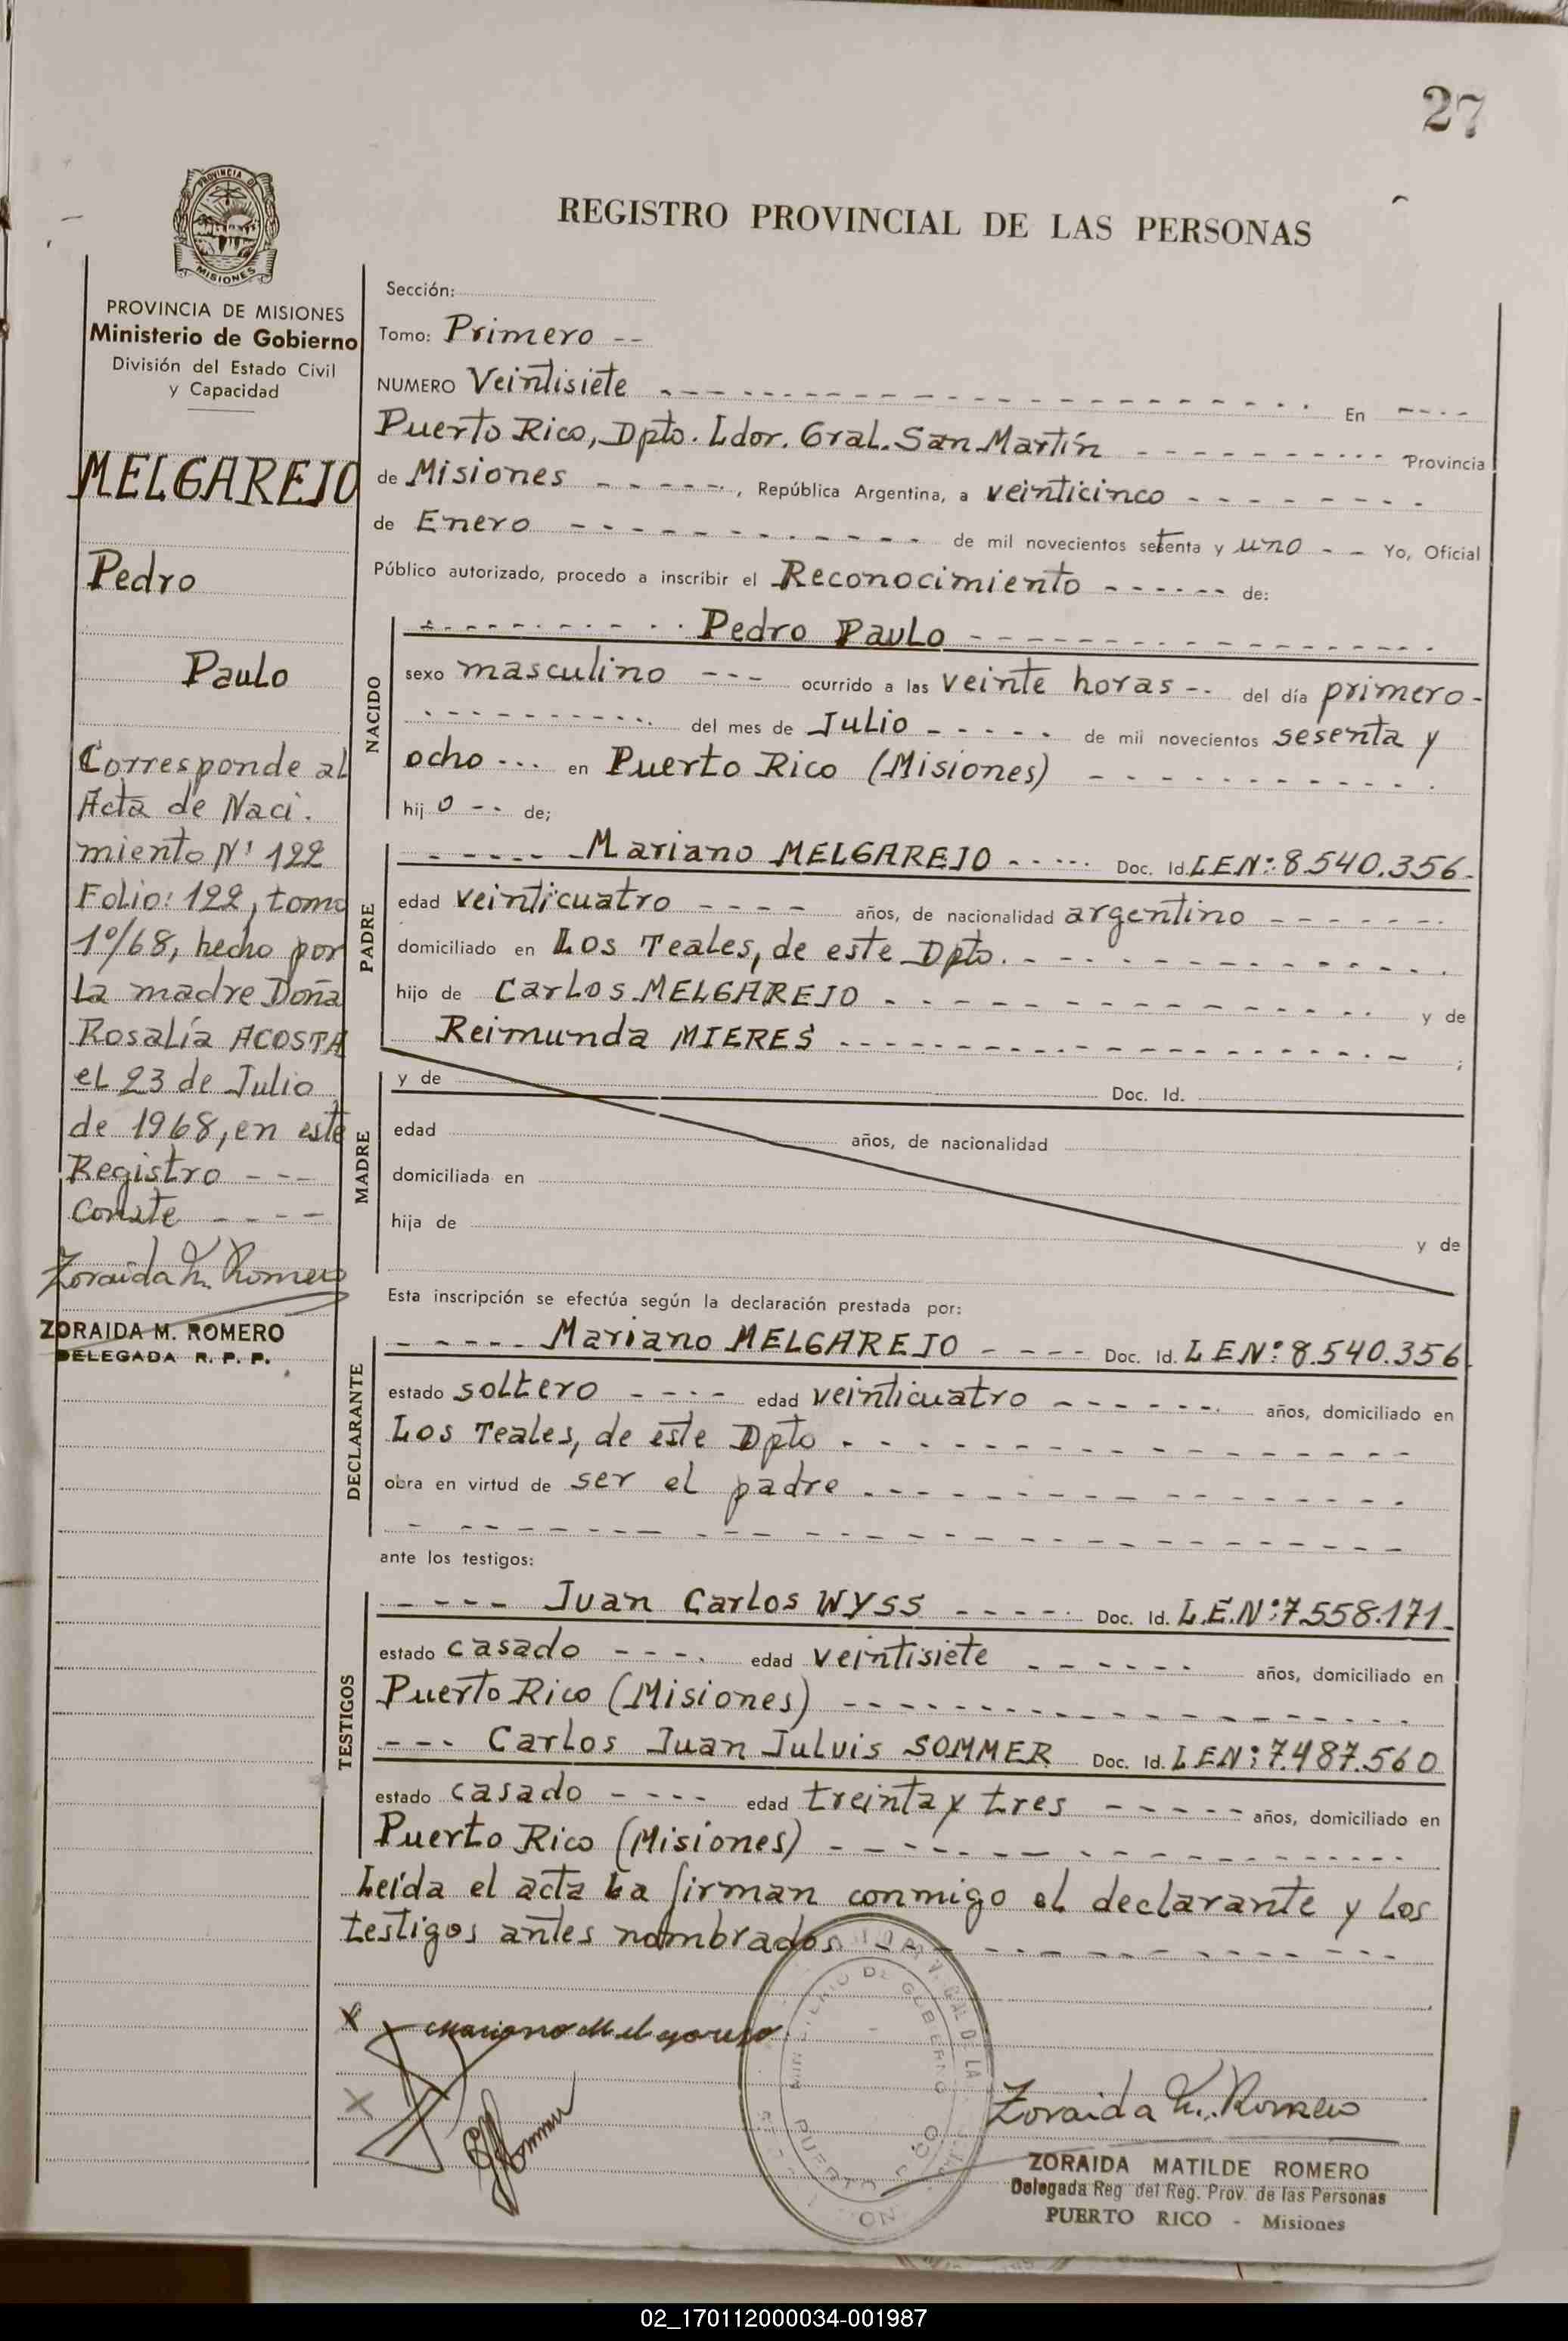 27
PROVINCIA DE
MISIONES
REGISTRO PROVINCIAL DE LAS PERSONAS
PROVINCIA DE MISIONES
Ministerio de Gobierno
División del Estado Civil
y Capacidad
MELGAREJO
Pedro
Paulo
Corresponde al
Acta de Naci.
miento Nº 122
Folio: 122, tomo
1º/68, hecho por
La madre Doña
Rosalía ACOSTA
el 23 de Julio
de 1968, en este
Registro ---
Conste ----
Zoraida M. Romero
ZORAIDA M. ROMERO
DELEGADA R. P. P.
Sección:
Tomo: Primero --
NUMERO Veintisiete En
Puerto Rico, Dpto. Ldor. Gral. San Martín Provincia
de Misiones, República Argentina, a veinticinco
de Enero de mil novecientos setenta y uno -- Yo, Oficial
Público autorizado, procedo a inscribir el Reconocimiento de:
NACIDO
Pedro Paulo
sexo masculino --- ocurrido a las veinte horas -- del día primero-
del mes de Julio de mil novecientos sesenta y
ocho --- en Puerto Rico (Misiones)
hij o -- de;
PADRE
Mariano MELGAREJO Doc. Id. LEN: 8.540.356-
edad veinticuatro ---- años, de nacionalidad argentino
domiciliado en Los Teales, de este Dpto.
hijo de Carlos MELGAREJO y de
Reimunda MIERES ;
MADRE
y de Doc. Id.
edad años, de nacionalidad
domiciliada en
hija de y de
Esta inscripción se efectúa según la declaración prestada por:
DECLARANTE
Mariano MELGAREJO ---- Doc. Id. LENº: 8.540.356
estado soltero ---- edad veinticuatro años, domiciliado en
Los Teales, de este Dpto
obra en virtud de ser el padre
ante los testigos:
TESTIGOS
---- Juan Carlos WYSS Doc. Id. L.E.Nº: 7.558.171-
estado casado ---- edad veintisiete años, domiciliado en
Puerto Rico (Misiones)
--- Carlos Juan Juluis SOMMER Doc. Id. LEN: 7.487.560
estado casado ---- edad treinta y tres ----- años, domiciliado en
Puerto Rico (Misiones)
Leída el acta La firman conmigo el declarante y Los
testigos antes nombrados
x Mariano Melgarejo
x
Zoraida M. Romero
ZORAIDA MATILDE ROMERO
Delegada Reg del Reg. Prov. de las Personas
PUERTO RICO - Misiones
02_170112000034-001987